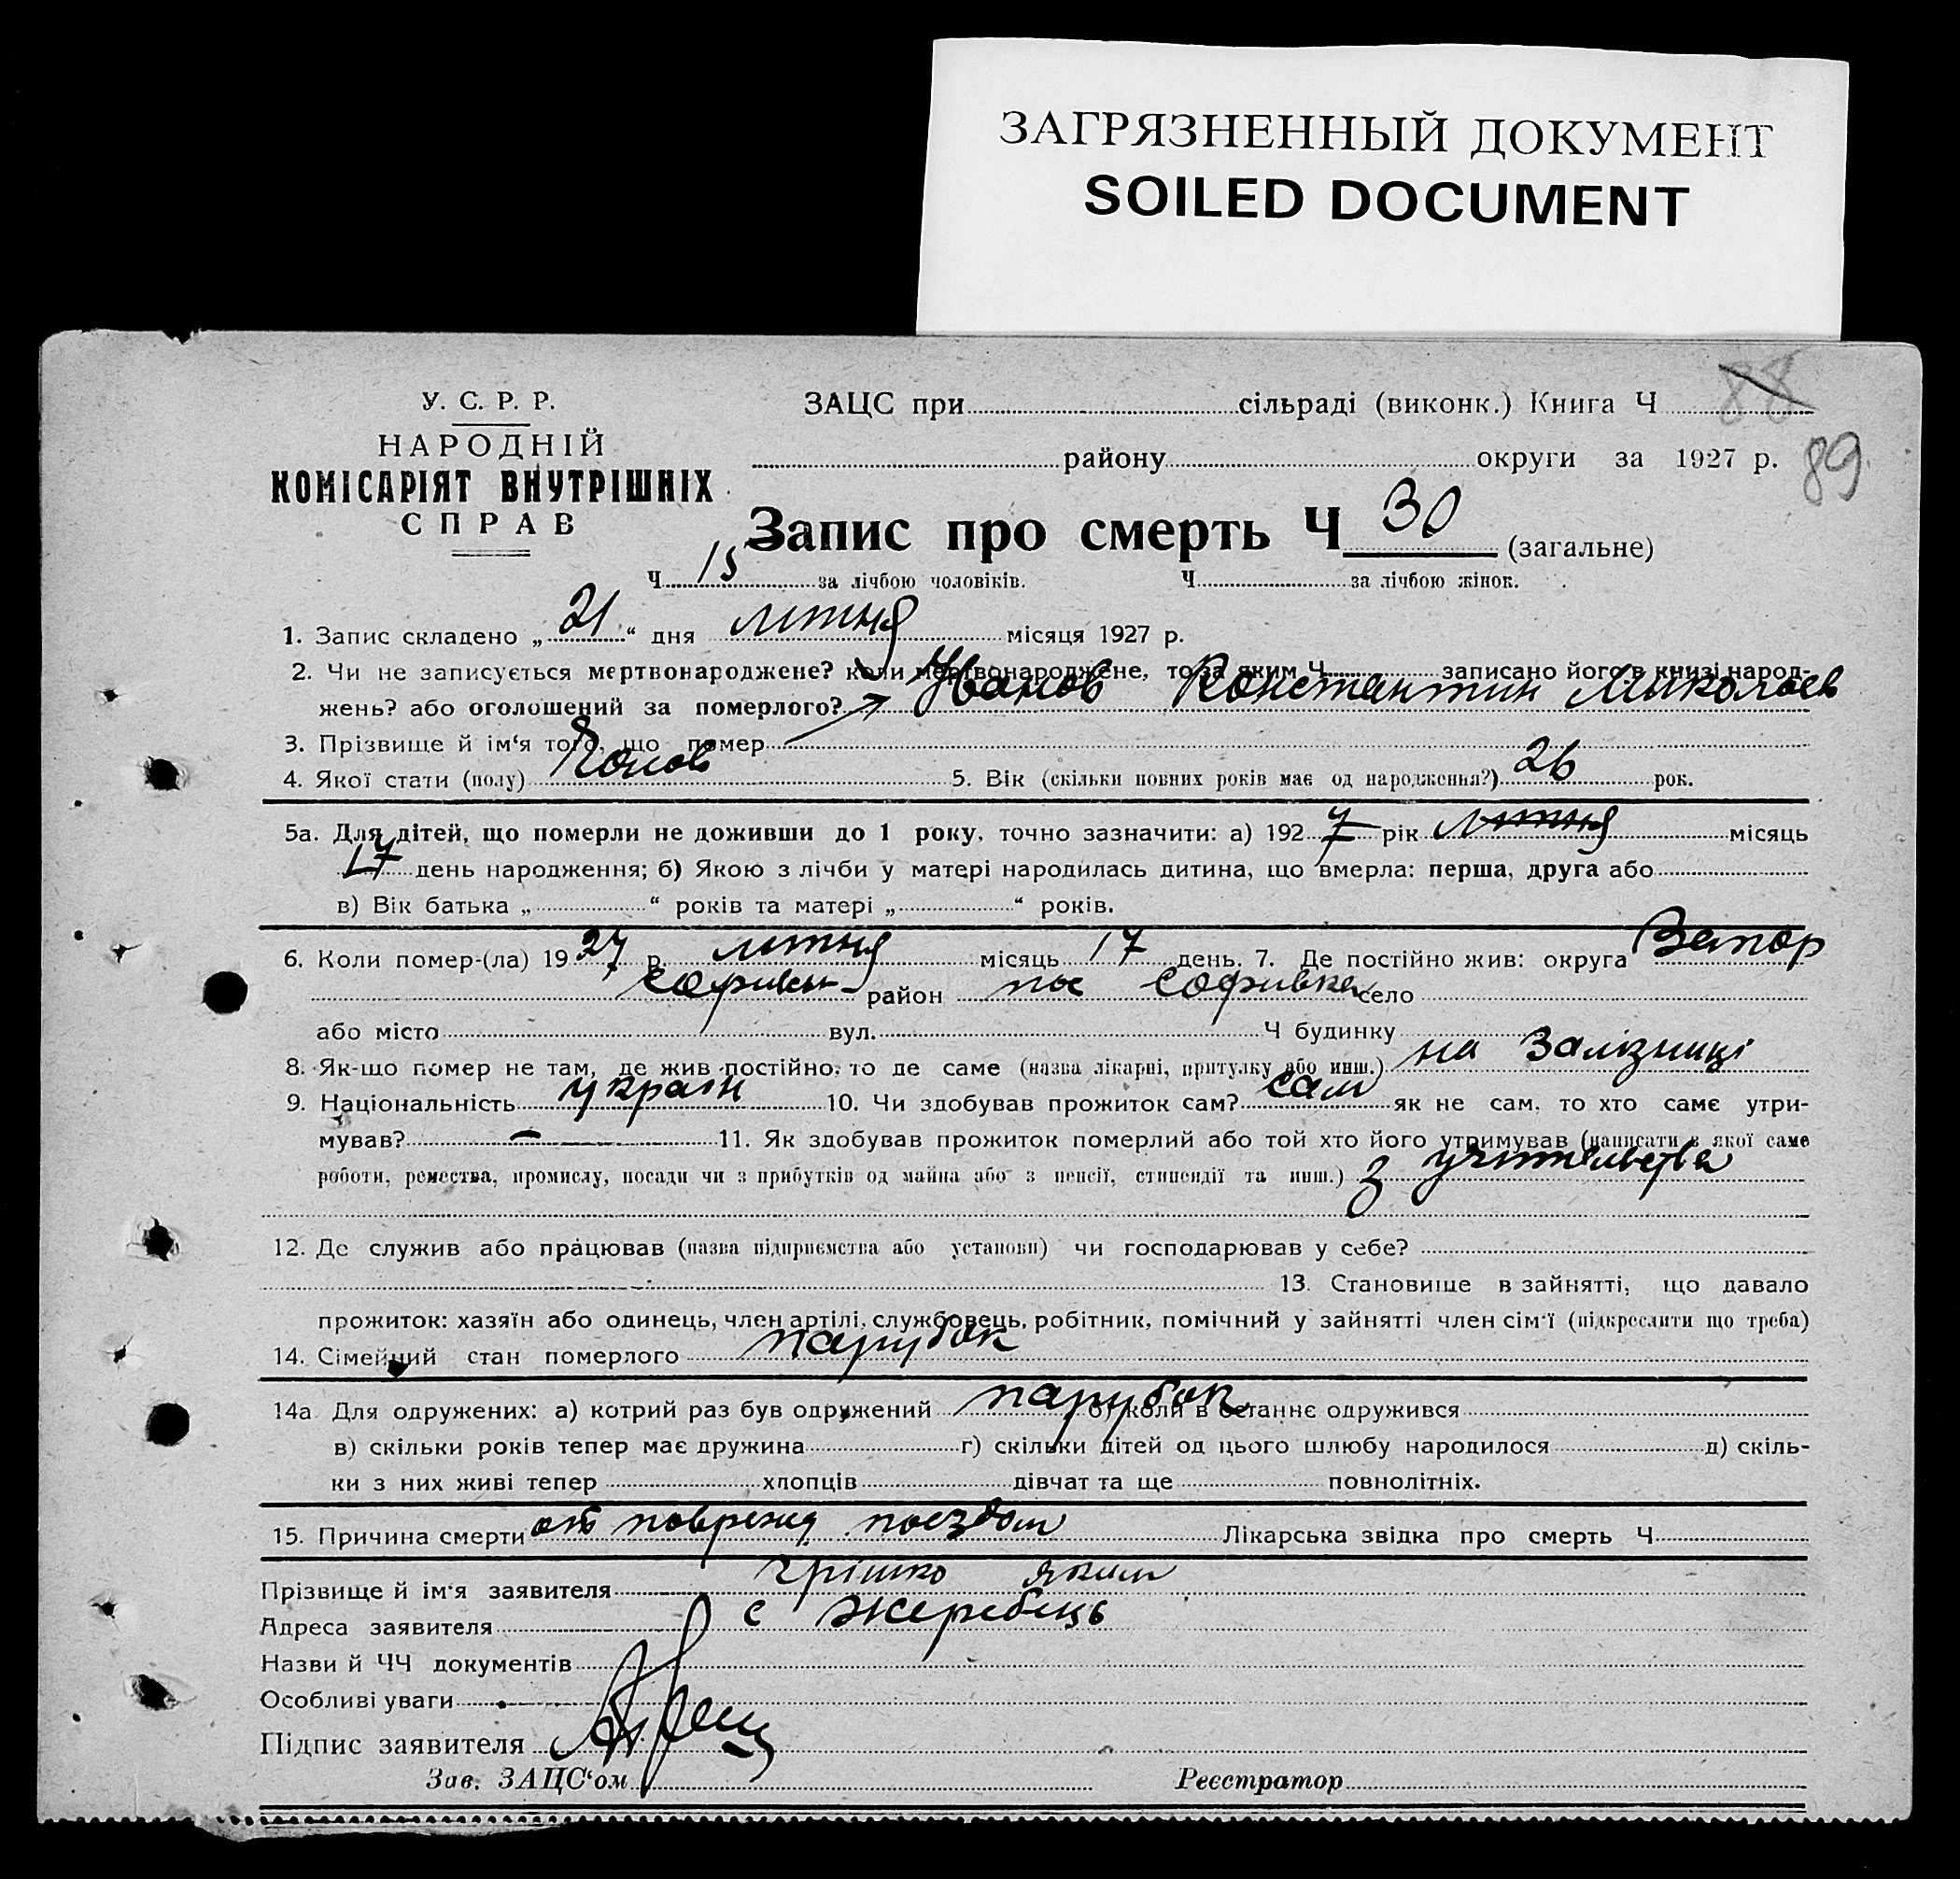 ЗАГРЯЗНЕННЫЙ ДОКУМЕНТ
SOILED DOCUMENT
У. С. Р. Р.
НАРОДНІЙ
КОМІСАРІЯТ ВНУТРІШНІХ
СПРАВ
ЗАЦС при сільраді (виконк.) Книга Ч 88
району округи за 1927 р. 89
Запис про смерть Ч 30 (загальне)
Ч 15 за лічбою чоловіків. Ч за лічбою жінок.
1. Запис складено „21“ дня лютня місяця 1927 р.
2. Чи не записується мертвонароджене? коли мертвонароджене, то за яким Ч записано його в книзі народ-
жень? або оголошений за померлого? Иванов Константин Миколаев
3. Прізвище й ім‘я того, що помер
4. Якої стати (полу) Чолов 5. Вік (скільки повних років має од народження?) 26 рок.
5а. Для дітей, що померли не доживши до 1 року, точно зазначити: а) 1927 рік лютня місяць
17 день народження; б) Якою з лічби у матері народилась дитина, що вмерла: перша, друга або
в) Вік батька „ “ років та матері „ “ років.
6. Коли помер-(ла) 1927 р. лютня місяць 17 день. 7. Де постійно жив: округа Запор
Софиевськ район пос Софивка село
або місто вул. Ч будинку
8. Як-що помер не там, де жив постійно, то де саме (назва лікарні, притулку або инш.) на Залізниці
9. Національність україн 10. Чи здобував прожиток сам? сам як не сам, то хто саме утри-
мував? — 11. Як здобував прожиток померлий або той хто його утримував (написати з якої саме
роботи, ремества, промислу, посади чи з прибутків од майна або з пенсії, стипендії та инш.) з учительства
12. Де служив або працював (назва підприємства або установи) чи господарював у себе?
13. Становище в зайнятті, що давало
прожиток: хазяїн або одинець, член артілі, службовець, робітник, помічний у зайнятті член сім‘ї (підкреслити що треба)
14. Сімейний стан померлого парубок
14а Для одружених: а) котрий раз був одружений парубок б) коли в останнє одружився
в) скільки років тепер має дружина г) скільки дітей од цього шлюбу народилося д) скіль-
ки з них живі тепер хлопців дівчат та ще повнолітніх.
15. Причина смерти от поврежд поездом Лікарська звідка про смерть Ч
Прізвище й ім‘я заявителя Грішко Яким
Адреса заявителя с Жеребець
Назви й ЧЧ документів
Особливі уваги
Підпис заявителя
Зав. ЗАЦС‘ом Реєстратор